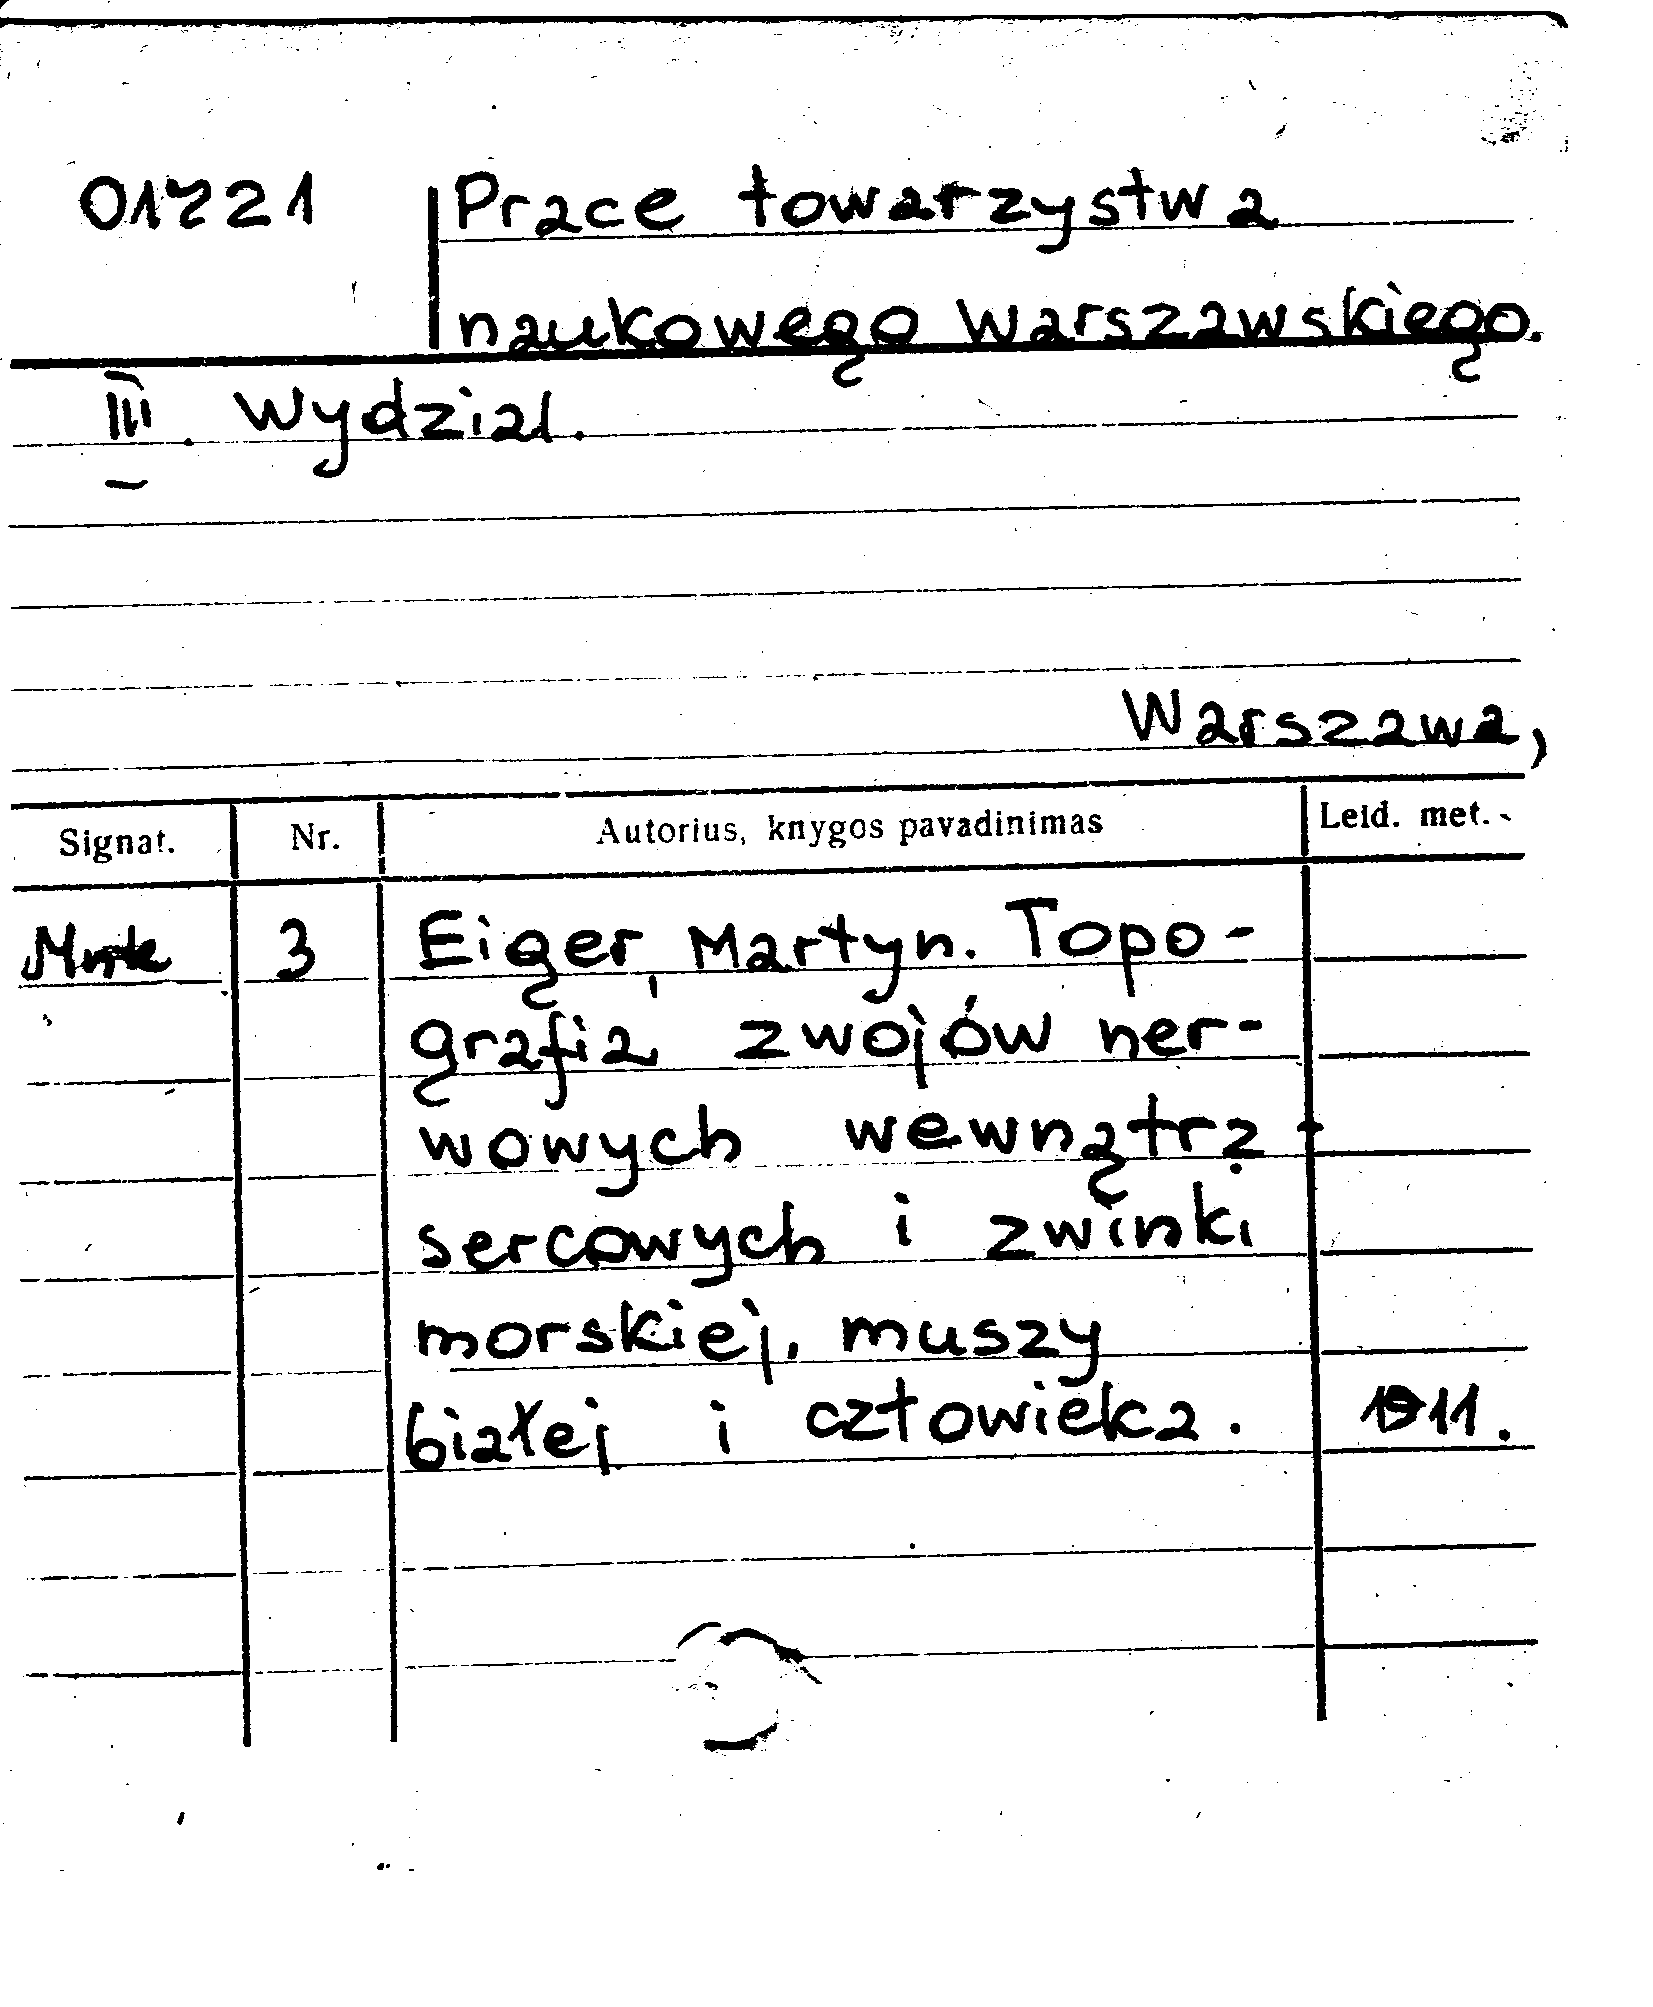 01721 Prace towarzystwa
naukowego Warszawskiego.
III. Wydzial.
Warszawa,
Signat. Nr. Autorius, knygos pavadinimas Leid. met.
3 Eiger, Martyn. Topo-
grafia zwojów ner-
wowych wewnątrz-
sercowych i zwinki
morskiej, muszy
białej i człowieka. 1911.